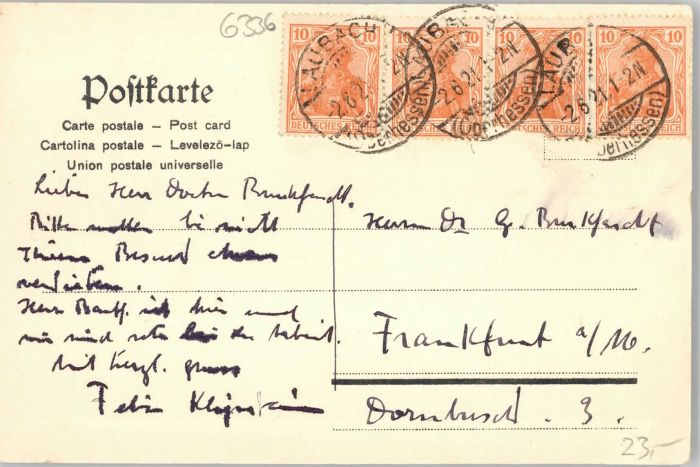 6336
10 10 10 10
DEUTSCHES REICH
LAUBACH
-2.6.21.1-2N
(Oberhessen)
Postkarte
Carte postale – Post card
Cartolina postale – Levelező-lap
Union postale universelle
Lieber Herr Doctor Burckhardt.
Bitte wollen Sie nicht
Ihren Besuch
verschieben.
Herr ist hier und
wir sind der Arbeit.
Mit herzl. gruss
Felix
Herrn Dr. G. Burckhardt
Frankfurt a/M.
Dornbusch. 3.
23,-